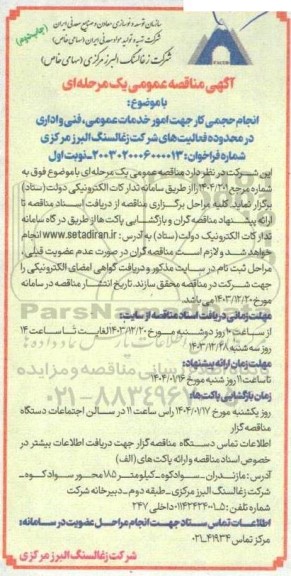 سازمان توسعه و نوسازی معادن و صنایع معدنی ایران
شرکت تهیه و تولید مواد معدنی ایران (سهامی خاص)
شرکت زغالسنگ البرز مرکزی (سهامی خاص)
(چاپ دوم)
آگهی مناقصه عمومی یک مرحله‌ای
با موضوع:
انجام حجمی کار جهت امور خدمات عمومی، فنی و اداری
در محدوده فعالیت‌های شرکت زغالسنگ البرز مرکزی
شماره فراخوان: ۲۰۰۳۰۲۰۰۰۶۰۰۰۰۱۳-نوبت اول
این شرکت در نظر دارد مناقصه عمومی یک مرحله‌ای با موضوع فوق به
شماره مرجع ۱۴۰۴/۲۰۱ را از طریق سامانه تدارکات الکترونیکی دولت (ستاد)
برگزار نماید کلیه مراحل برگزاری مناقصه از دریافت اسناد مناقصه تا
ارائه پیشنهاد مناقصه گران و بازگشایی پاکت‌ها از طریق درگاه سامانه
تدارکات الکترونیک دولت (ستاد) به آدرس: www.setadiran.ir انجام
خواهد شد و لازم است مناقصه گران در صورت عدم عضویت قبلی،
مراحل ثبت نام در سایت مذکور و دریافت گواهی امضای الکترونیکی را
جهت شرکت در مناقصه محقق سازند. تاریخ انتشار مناقصه در سامانه
مورخ ۱۴۰۳/۱۲/۲۰ می باشد.
مهلت زمانی دریافت اسناد مناقصه از سایت:
از ساعت ۱۰ روز دوشنبه مورخ ۱۴۰۳/۱۲/۲۰ لغایت تا ساعت ۱۴
روز سه شنبه ۱۴۰۳/۱۲/۲۸
مهلت زمان ارائه پیشنهاد:
تا ساعت ۱۱ روز شنبه مورخ ۱۴۰۴/۰۱/۱۶
زمان بازگشایی پاکت‌ها:
روز یکشنبه مورخ ۱۴۰۴/۰۱/۱۷ راس ساعت ۱۱ در سالن اجتماعات دستگاه
مناقصه گزار
اطلاعات تماس دستگاه مناقصه گزار جهت دریافت اطلاعات بیشتر در
خصوص اسناد مناقصه و ارائه پاکت‌های (الف)
آدرس: مازندران - سوادکوه - کیلومتر ۱۸۵ محور سوادکوه -
شرکت زغالسنگ البرز مرکزی - طبقه دوم - دبیرخانه شرکت
شماره تلفن: ۵-۰۱۱۴۲۴۲۴۰۰۱ داخلی ۲۴۷
اطلاعات تماس ستاد جهت انجام مراحل عضویت در سامانه:
مرکز تماس ۴۱۹۳۴-۰۲۱
شرکت زغالسنگ البرز مرکزی